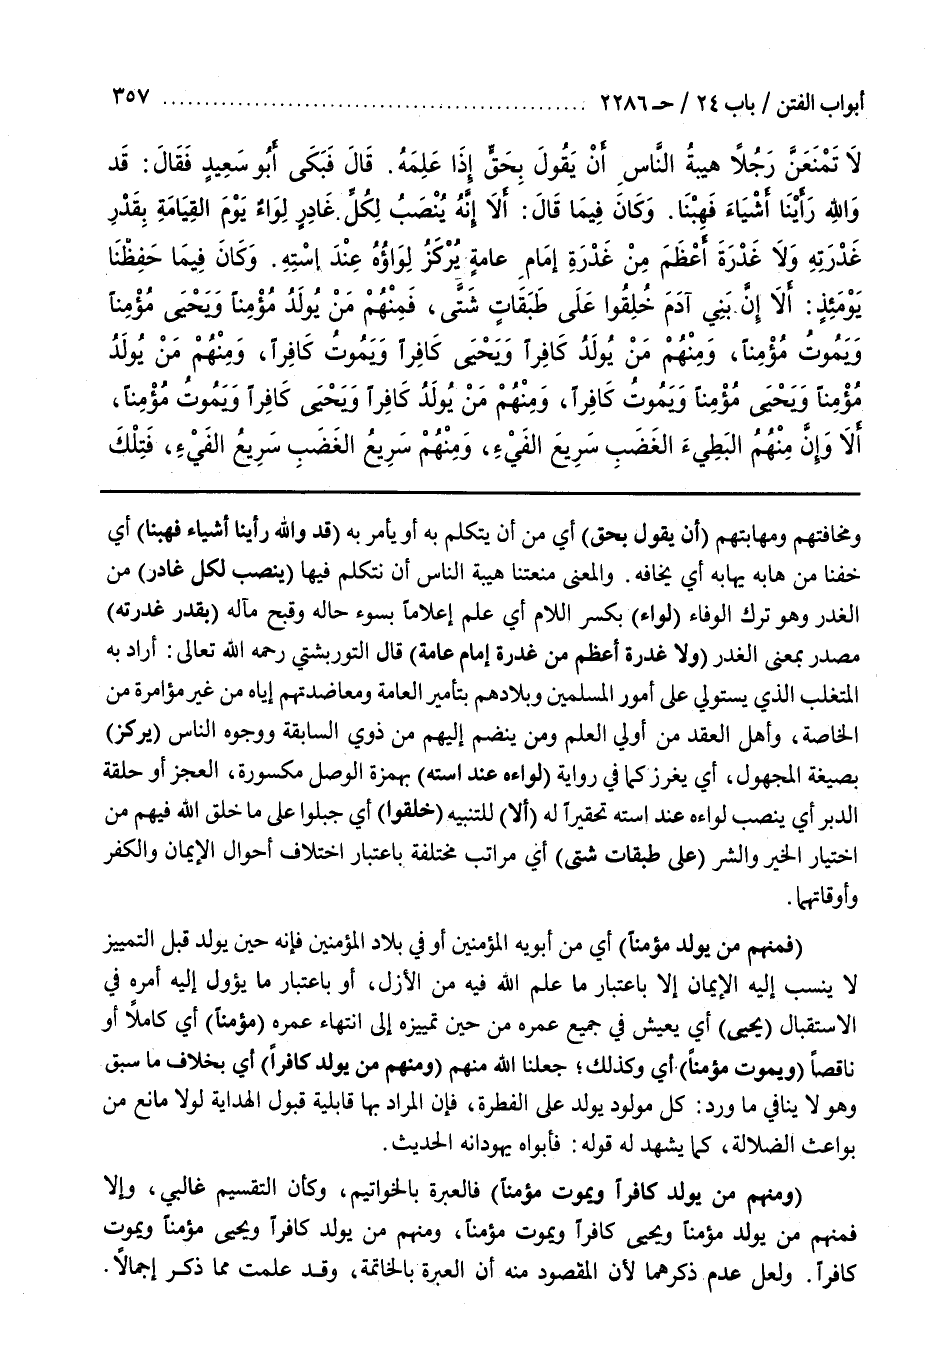 أبواب الفتن / باب ٢٤ / حـ ٢٢٨٦ .................................................. ٣٥٧
لَا تَمْنَعَنَّ رَجُلًا هيبةُ النَّاسِ أَنْ يَقُولَ بِحَقٍّ إِذَا عَلِمَهُ. قَالَ فَبَكَى أَبُو سَعِيدٍ فَقَالَ: قَد
وَاللهِ رَأَيْنَا أَشْيَاءَ فَهِبْنَا. وَكَانَ فِيمَا قَالَ: أَلَا إِنَّهُ يُنْصَبُ لِكُلِّ غَادِرٍ لِوَاءٌ يَوْمَ القِيَامَةِ بِقَدْرِ
غَدْرَتِهِ وَلَا غَدْرَةَ أَعْظَمَ مِنْ غَدْرَةِ إِمَامِ عامةٍ يُرْكَزُ لِوَاؤُهُ عِنْدَ اِسْتِهِ. وَكَانَ فِيمَا حَفِظْنَا
يَوْمَئِذٍ: أَلَا إِنَّ بَنِي آدَمَ خُلِقُوا عَلَى طَبَقَاتٍ شَتَّى، فَمِنْهُمْ مَنْ يُولَدُ مُؤْمِناً وَيَحْيَى مُؤْمِناً
وَيَمُوتُ مُؤْمِناً، وَمِنْهُمْ مَنْ يُولَدُ كَافِراً وَيَحْيَى كَافِراً وَيَمُوتُ كَافِراً، وَمِنْهُمْ مَنْ يُولَدُ
مُؤْمِناً وَيَحْيَى مُؤْمِناً وَيَمُوتُ كَافِراً، وَمِنْهُمْ مَنْ يُولَدُ كَافِراً وَيَحْيَى كَافِراً وَيَمُوتُ مُؤْمِناً،
أَلَا وَإِنَّ مِنْهُمُ البَطِيءَ الغَضَبِ سَرِيعَ الفَيْءِ، وَمِنْهُمْ سَرِيعُ الغَضَبِ سَرِيعُ الفَيْءِ، فَتِلْكَ
ومخافتهم ومهابتهم (أن يقول بحق) أي من أن يتكلم به أو يأمر به (قد والله رأينا أشياء فهبنا) أي
خفنا من هابه يهابه أي يخافه. والمعنى منعتنا هيبة الناس أن نتكلم فيها (ينصب لكل غادر) من
الغدر وهو ترك الوفاء (لواء) بكسر اللام أي علم إعلاماً بسوء حاله وقبح مآله (بقدر غدرته)
مصدر بمعنى الغدر (ولا غدرة أعظم من غدرة إمام عامة) قال التوربشتي رحمه الله تعالى: أراد به
المتغلب الذي يستولي على أمور المسلمين وبلادهم بتأمير العامة ومعاضدتهم إياه من غير مؤامرة من
الخاصة، وأهل العقد من أولي العلم ومن ينضم إليهم من ذوي السابقة ووجوه الناس (يركز)
بصيغة المجهول، أي يغرز كما في رواية (لواءه عند استه) بهمزة الوصل مكسورة، العجز أو حلقة
الدبر أي ينصب لواءه عند استه تحقيراً له (ألا) للتنبيه (خلقوا) أي جبلوا على ما خلق الله فيهم من
اختيار الخير والشر (على طبقات شتى) أي مراتب مختلفة باعتبار اختلاف أحوال الإيمان والكفر
وأوقاتهما.
(فمنهم من يولد مؤمناً) أي من أبويه المؤمنين أو في بلاد المؤمنين فإنه حين يولد قبل التمييز
لا ينسب إليه الإيمان إلا باعتبار ما علم الله فيه من الأزل، أو باعتبار ما يؤول إليه أمره في
الاستقبال (يحيى) أي يعيش في جميع عمره من حين تمييزه إلى انتهاء عمره (مؤمناً) أي كاملًا أو
ناقصاً (ويموت مؤمناً) أي وكذلك؛ جعلنا الله منهم (ومنهم من يولد كافراً) أي بخلاف ما سبق
وهو لا ينافي ما ورد: كل مولود يولد على الفطرة، فإن المراد بها قابلية قبول الهداية لولا مانع من
بواعث الضلالة، كما يشهد له قوله: فأبواه يهودانه الحديث.
(ومنهم من يولد كافراً ويموت مؤمناً) فالعبرة بالخواتيم، وكأن التقسيم غالبي، وإلا
فمنهم من يولد مؤمناً ويحيى كافراً ويموت مؤمناً، ومنهم من يولد كافراً ويحيى مؤمناً ويموت
كافراً. ولعل عدم ذكرهما لأن المقصود منه أن العبرة بالخاتمة، وقد علمت مما ذكر إجمالًا.